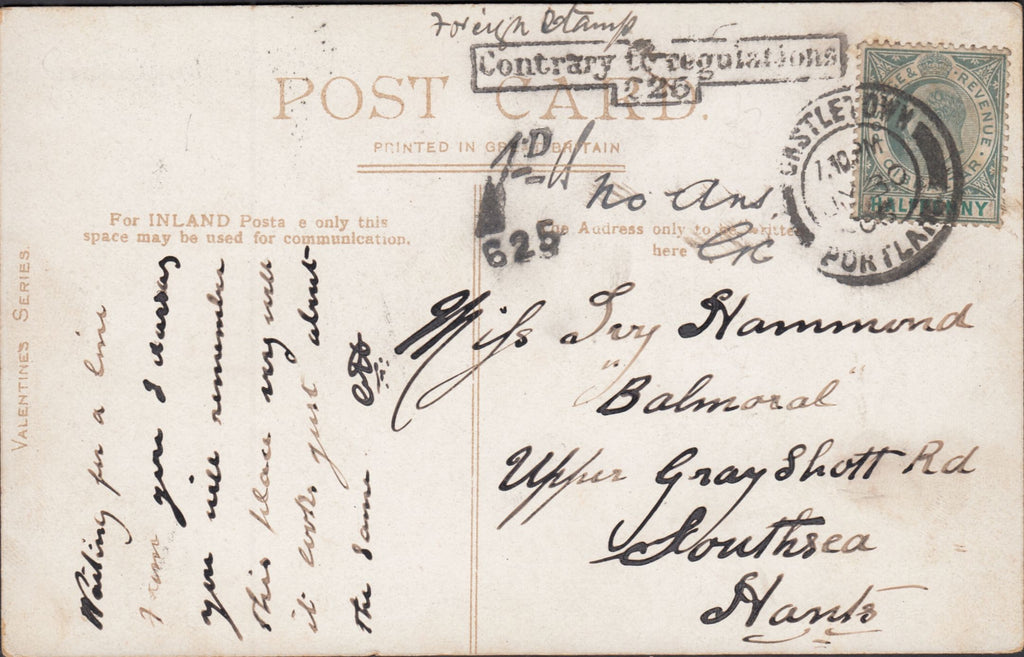 Foreign Stamp
Contrary to regulations
226
POST CARD.
PRINTED IN GREAT BRITAIN
1D
625
No Ans.
For INLAND Posta e only this
space may be used for communication.
The Address only to be written
here
POSTAGE & REVENUE
HALFPENNY
CASTLETOWN
PORTLAND
VALENTINE'S SERIES.
Waiting for a line
from you I daresay
you will remember
this place very well
it looks just about
the same.
Miss Ivy Hammond
"Balmoral"
Upper Gray Shott Rd
Southsea
Hants